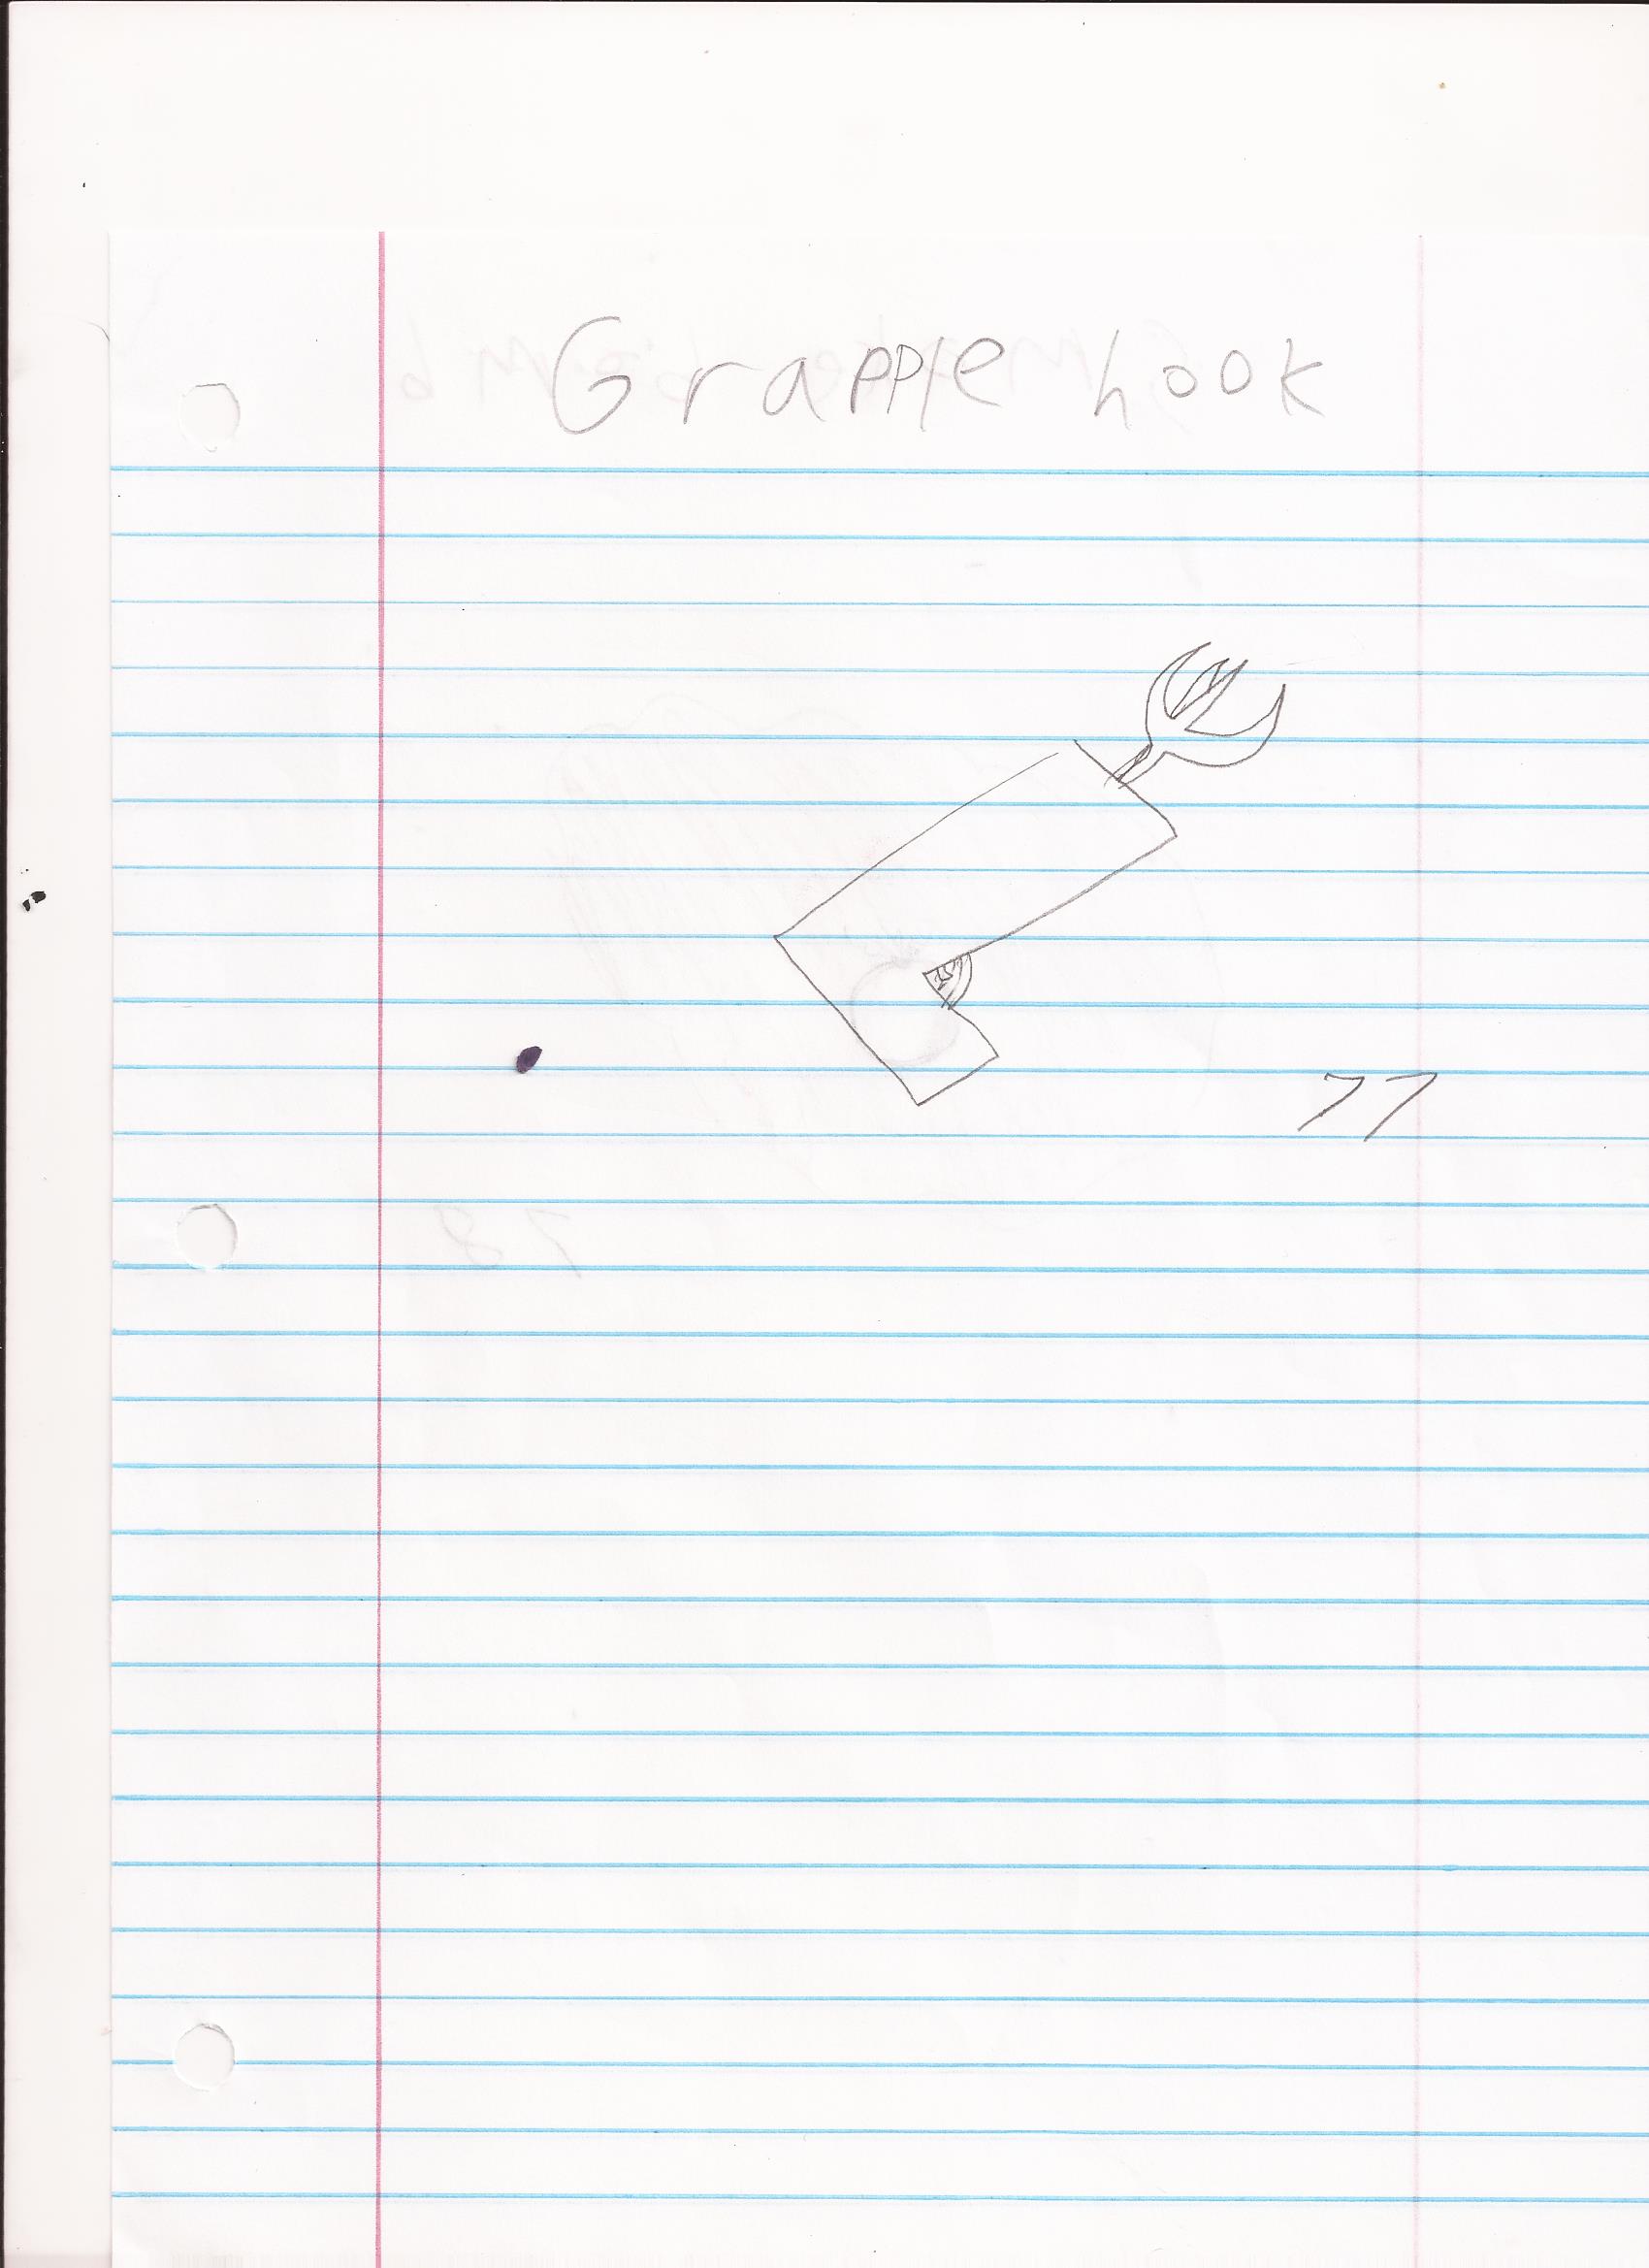 Grapple hook
77